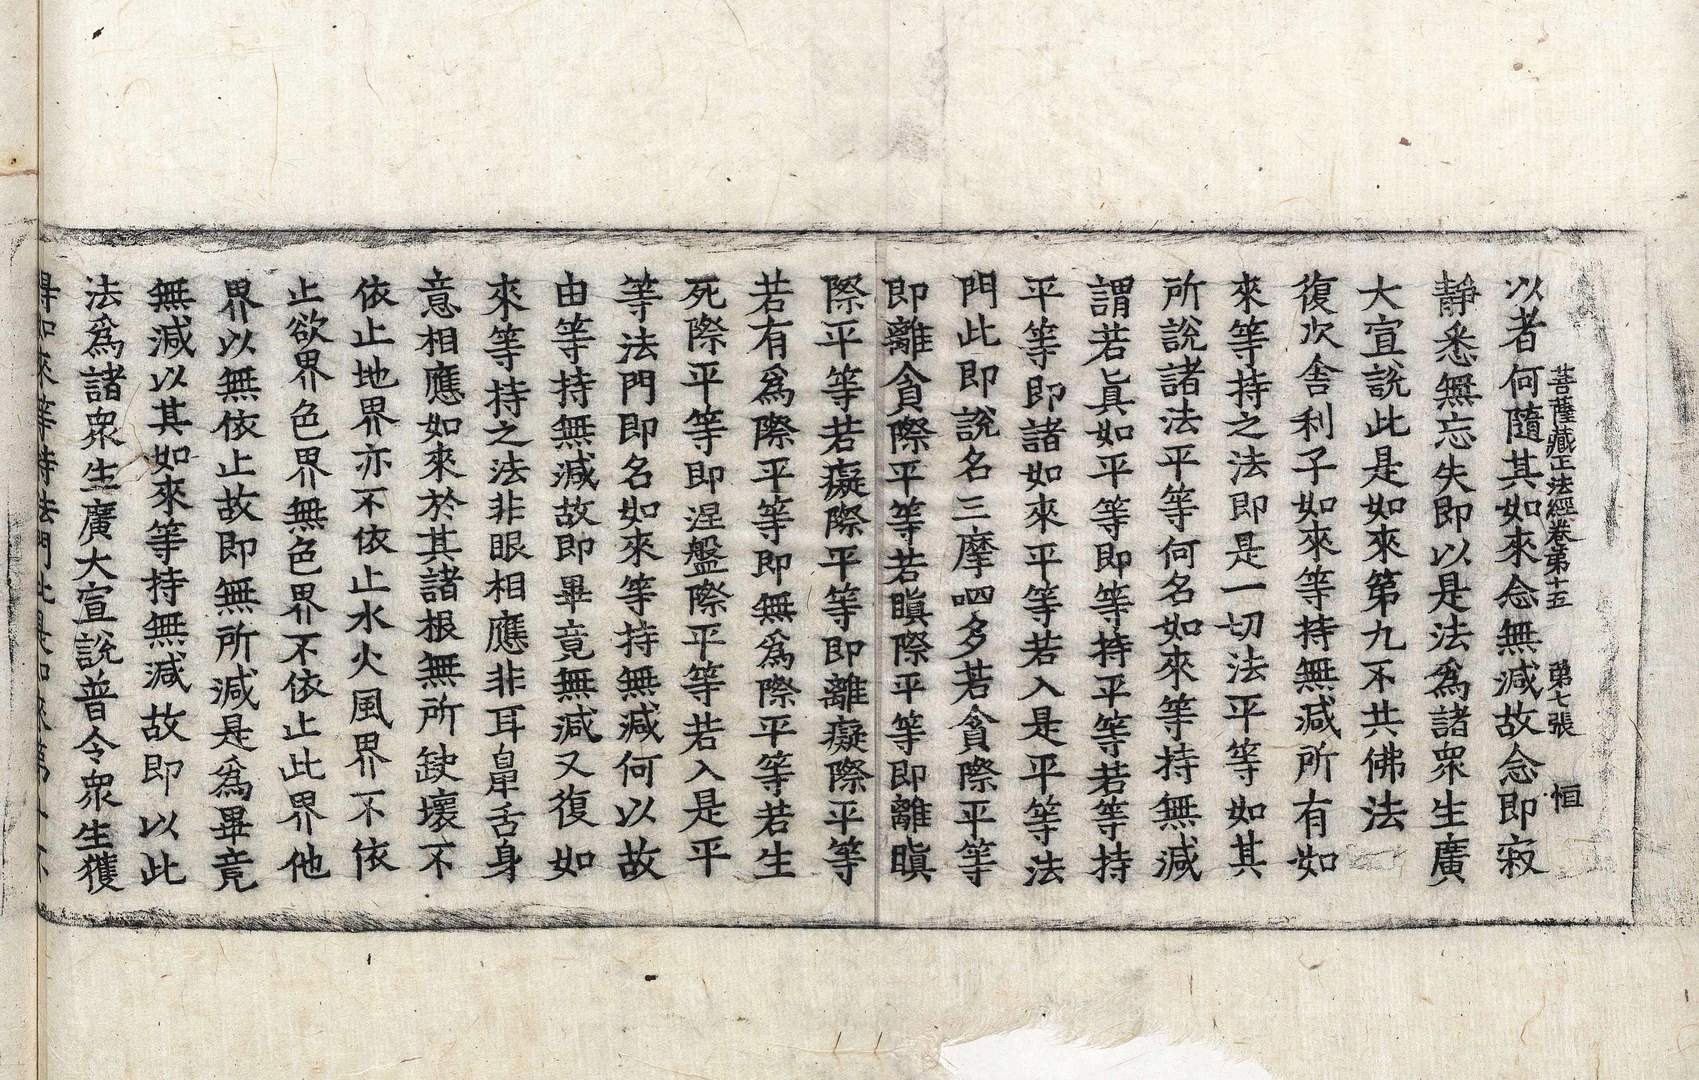 菩薩藏正法經卷第十五 第七張 恒
以者何隨其如來念無減故念即寂
靜悉無忘失即以是法爲諸衆生廣
大宣說此是如來第九不共佛法
復次舍利子如來等持無減所有如
來等持之法即是一切法平等如其
所說諸法平等何名如來等持無減
謂若眞如平等即等持平等若等持
平等即諸如來平等若入是平等法
門此即說名三摩呬多若貪際平等
即離貪際平等若瞋際平等即離瞋
際平等若癡際平等即離癡際平等
若有爲際平等即無爲際平等若生
死際平等即涅盤際平等若入是平
等法門即名如來等持無減何以故
由等持無減故即畢竟無減又復如
來等持之法非眼相應非耳鼻舌身
意相應如來於其諸根無所缺壞不
依止地界亦不依止水火風界不依
止欲界色界無色界不依止此界他
界以無依止故即無所減是爲畢竟
無減以其如來等持無減故即以此
法爲諸衆生廣大宣說普令衆生獲
得如來等持法門此是如來第十不